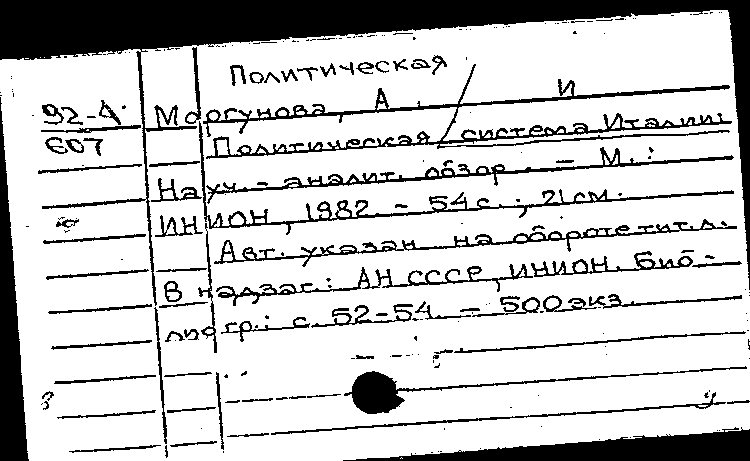 Политическая
92-4 Моргунова, А. И
607 Политическая / система Италии:
Науч.-аналит. обзор. - М.:
ИНИОН, 1982. - 54 с.; 21 см.
Авт. указан на обороте тит. л.
В надзаг.: АН СССР, ИНИОН. Биб-
лиогр.: с. 52-54. - 500 экз.